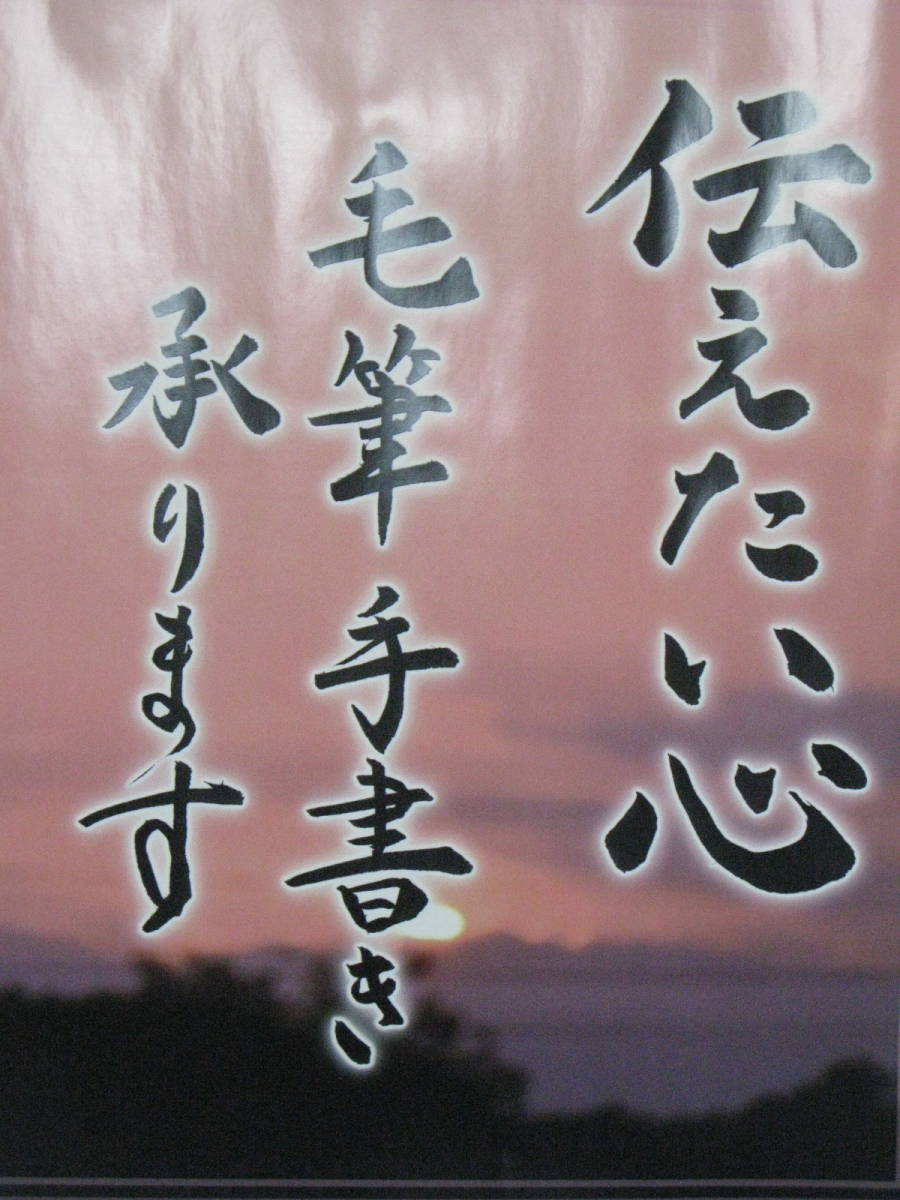 伝えたい心
毛筆手書き
承ります